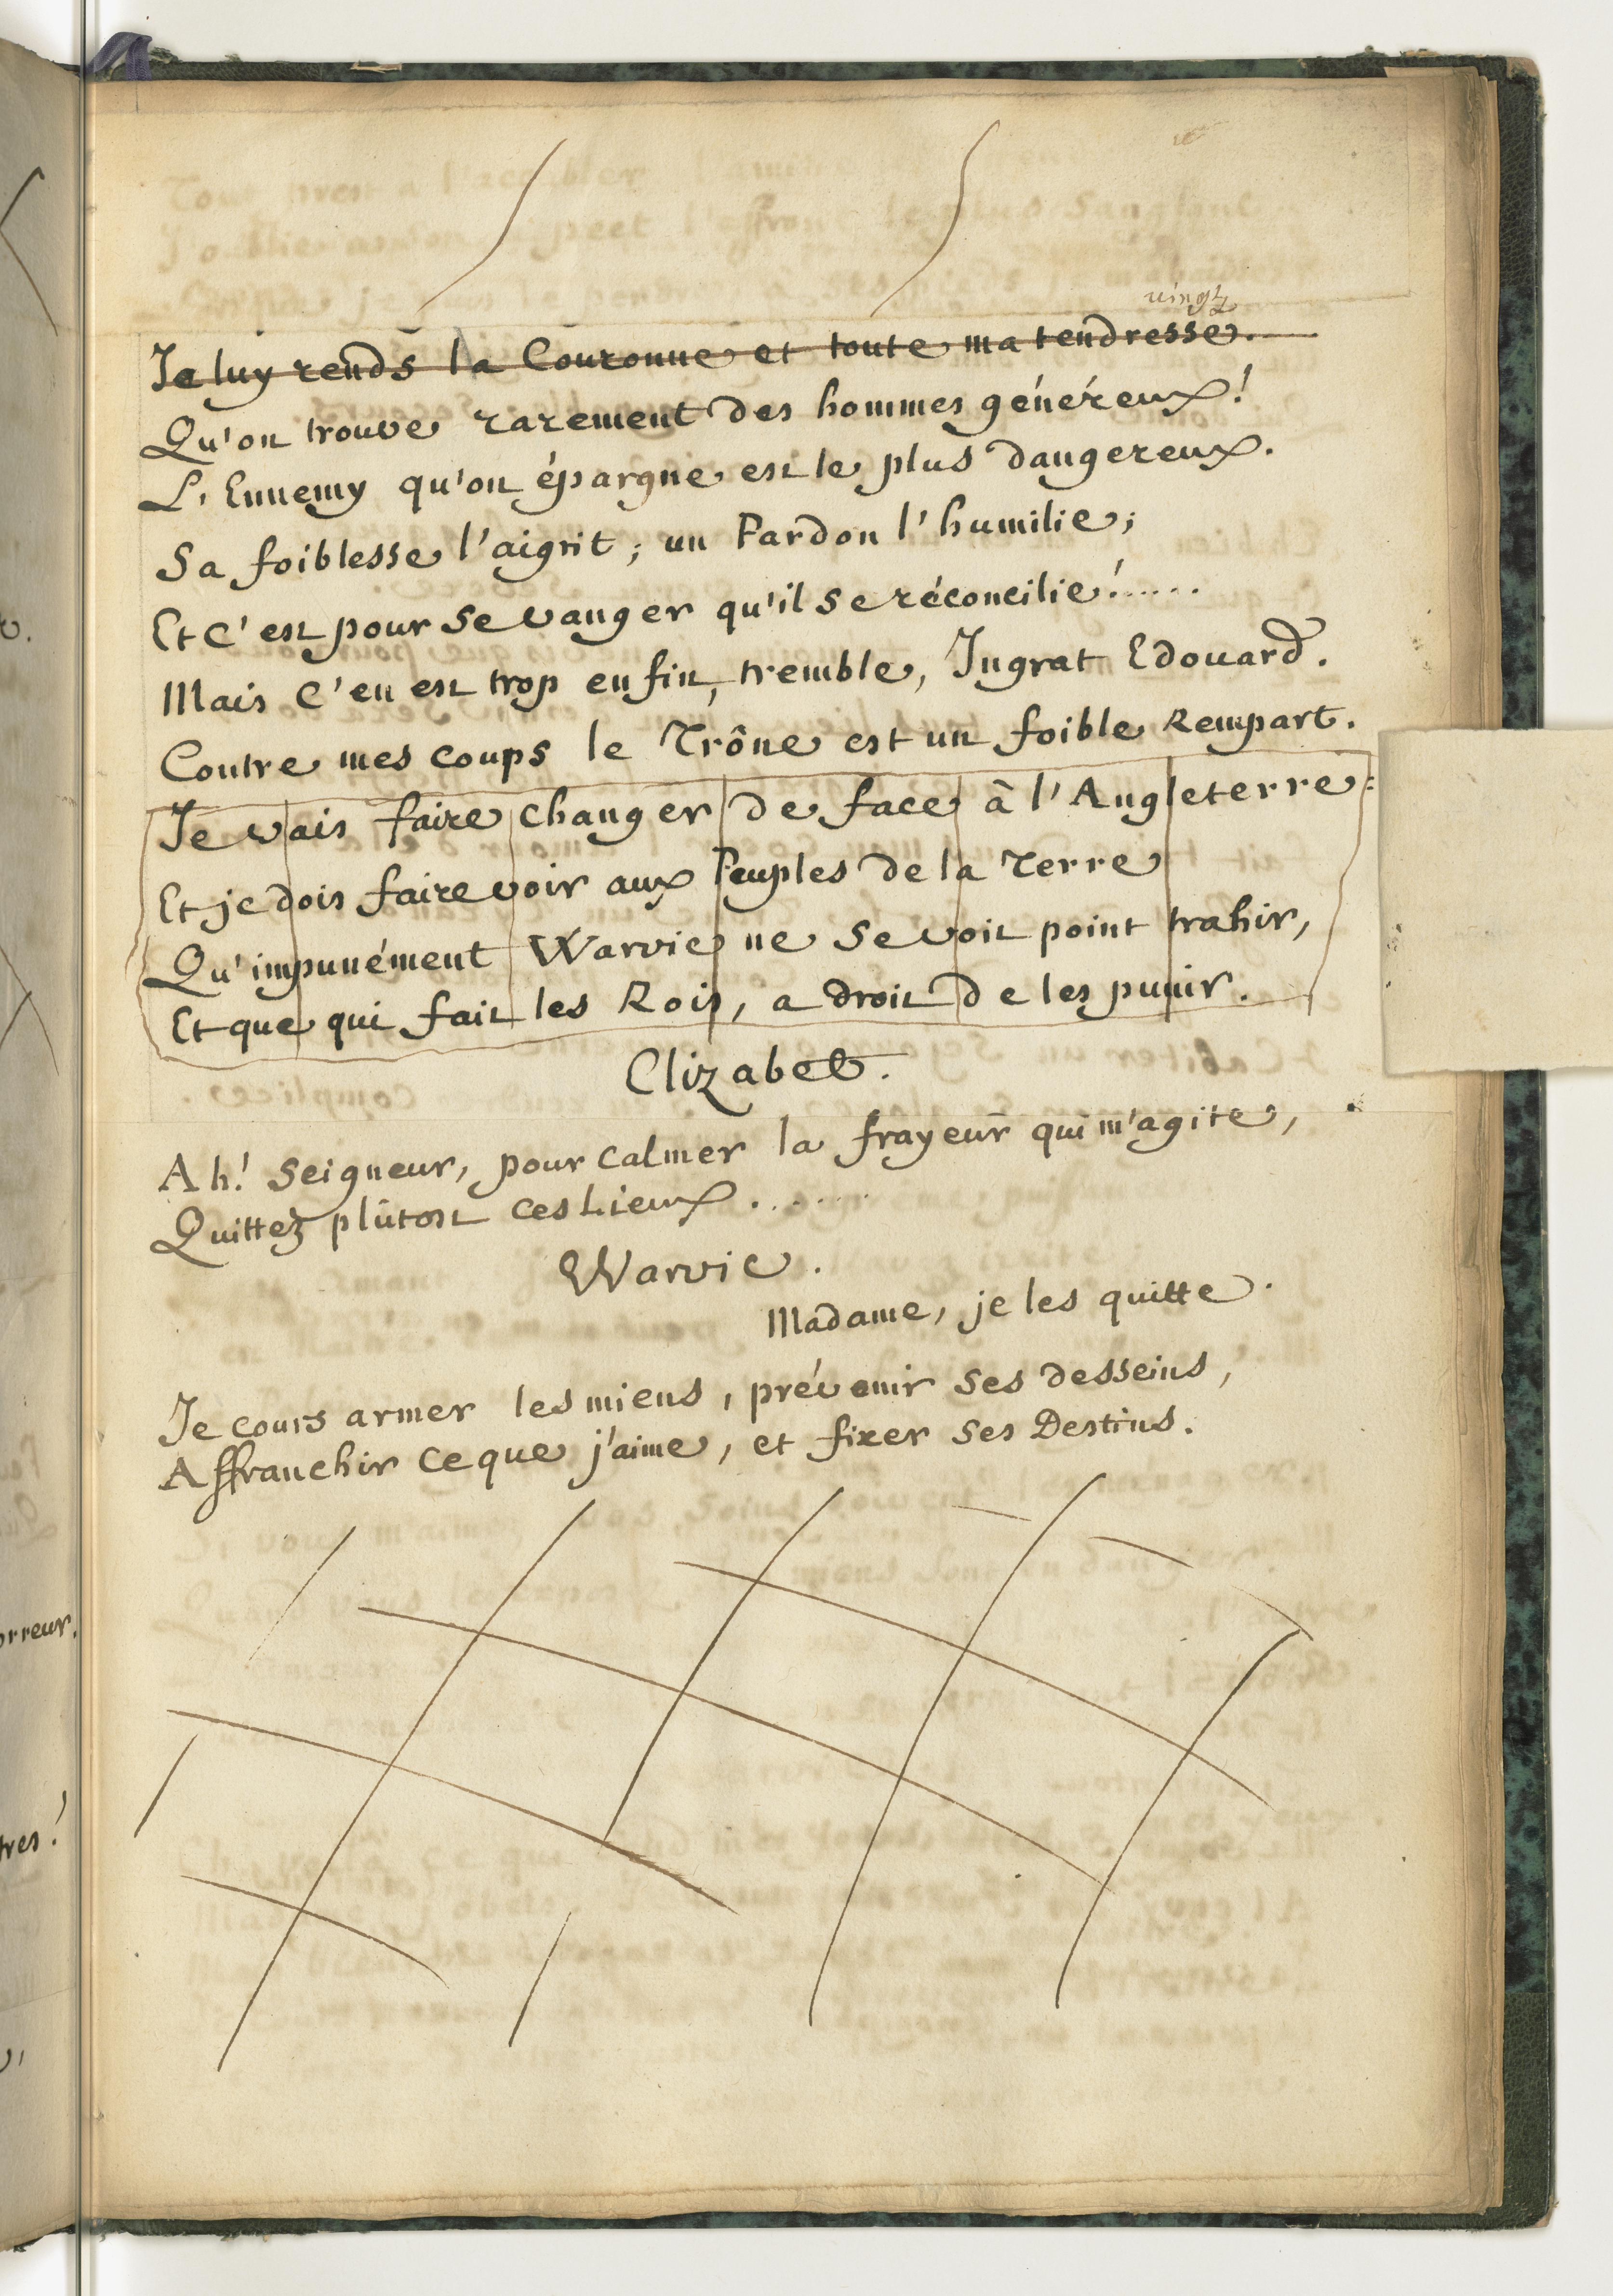 vingt
Je luy rends la Couronne et toute ma tendresse.
Qu'on trouve rarement des hommes généreux!
L'Ennemy qu'on épargne est le plus dangereux.
Sa foiblesse l'aigrit; un Pardon l'humilie;
Et c'est pour se vanger qu'il se réconcilie!......
Mais c'en est trop enfin, tremble, Ingrat Edouard.
Contre mes coups le Trône est un foible Rempart.
Je vais faire changer de face à l'Angleterre:
Et je dois faire voir aux Peuples de la Terre
Qu'impunément Warvic ne se voit point trahir,
Et que qui fait les Rois, a droit de les punir.
Elizabet.
Ah! Seigneur, pour calmer la frayeur qui m'agite,
Quittez plûtost ces Lieux......
Warvic.
Madame, je les quitte.
Je cours armer les miens, prévenir ses desseins,
Affranchir ce que j'aime, et fixer ses Destins.
orreur.
tres!